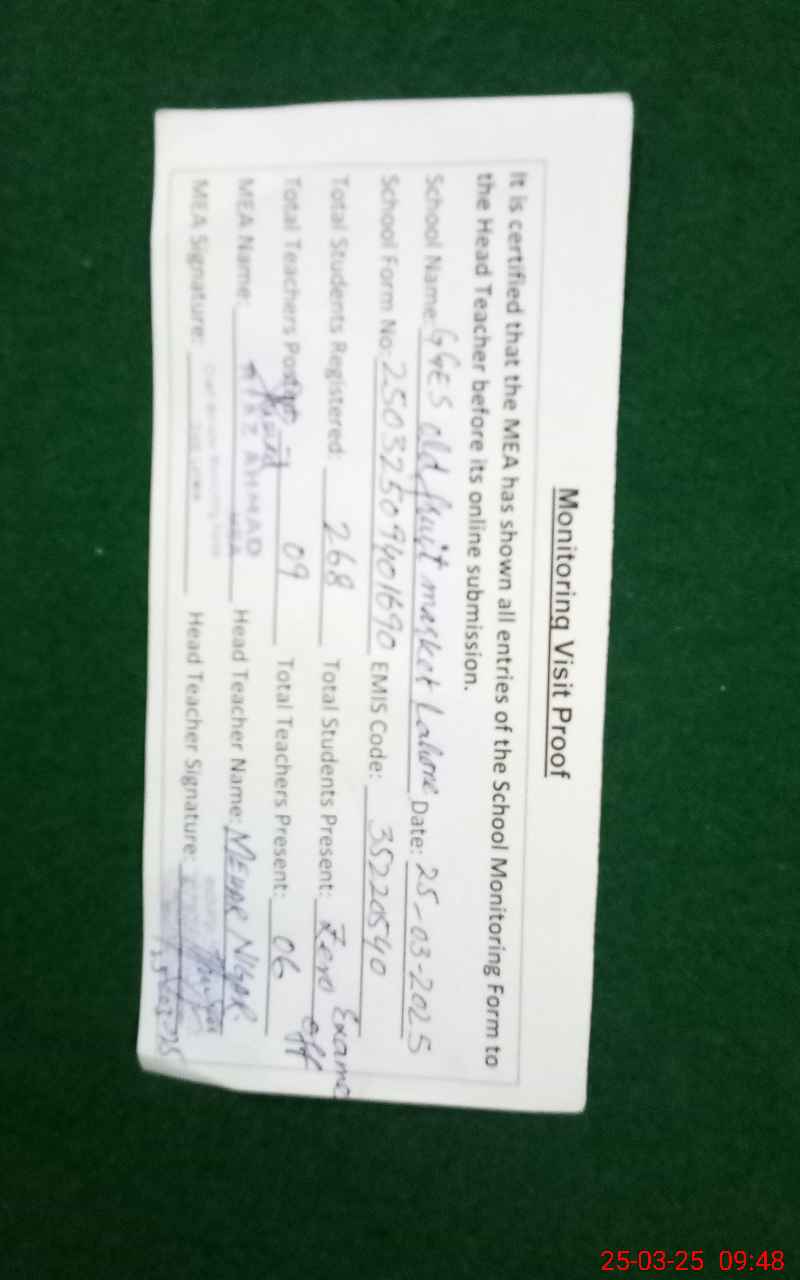 Monitoring Visit Proof
It is certified that the MEA has shown all entries of the School Monitoring Form to
the Head Teacher before its online submission.
School Name: GGES old fruit market Lahore Date: 25-03-2025
School Form No: 25032509401690 EMIS Code: 35220540
Total Students Registered: 268 Total Students Present: Zero Exams
off
Total Teachers Posted: 09 Total Teachers Present: 06
MEA Name: AHMAD Head Teacher Name: MEHAR NIGAR
MEA
MEA Signature: Head Teacher Signature:
25-03-25 09:48